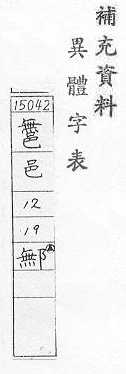 補充資料
異體字表
15042
邑
12
19
鄦